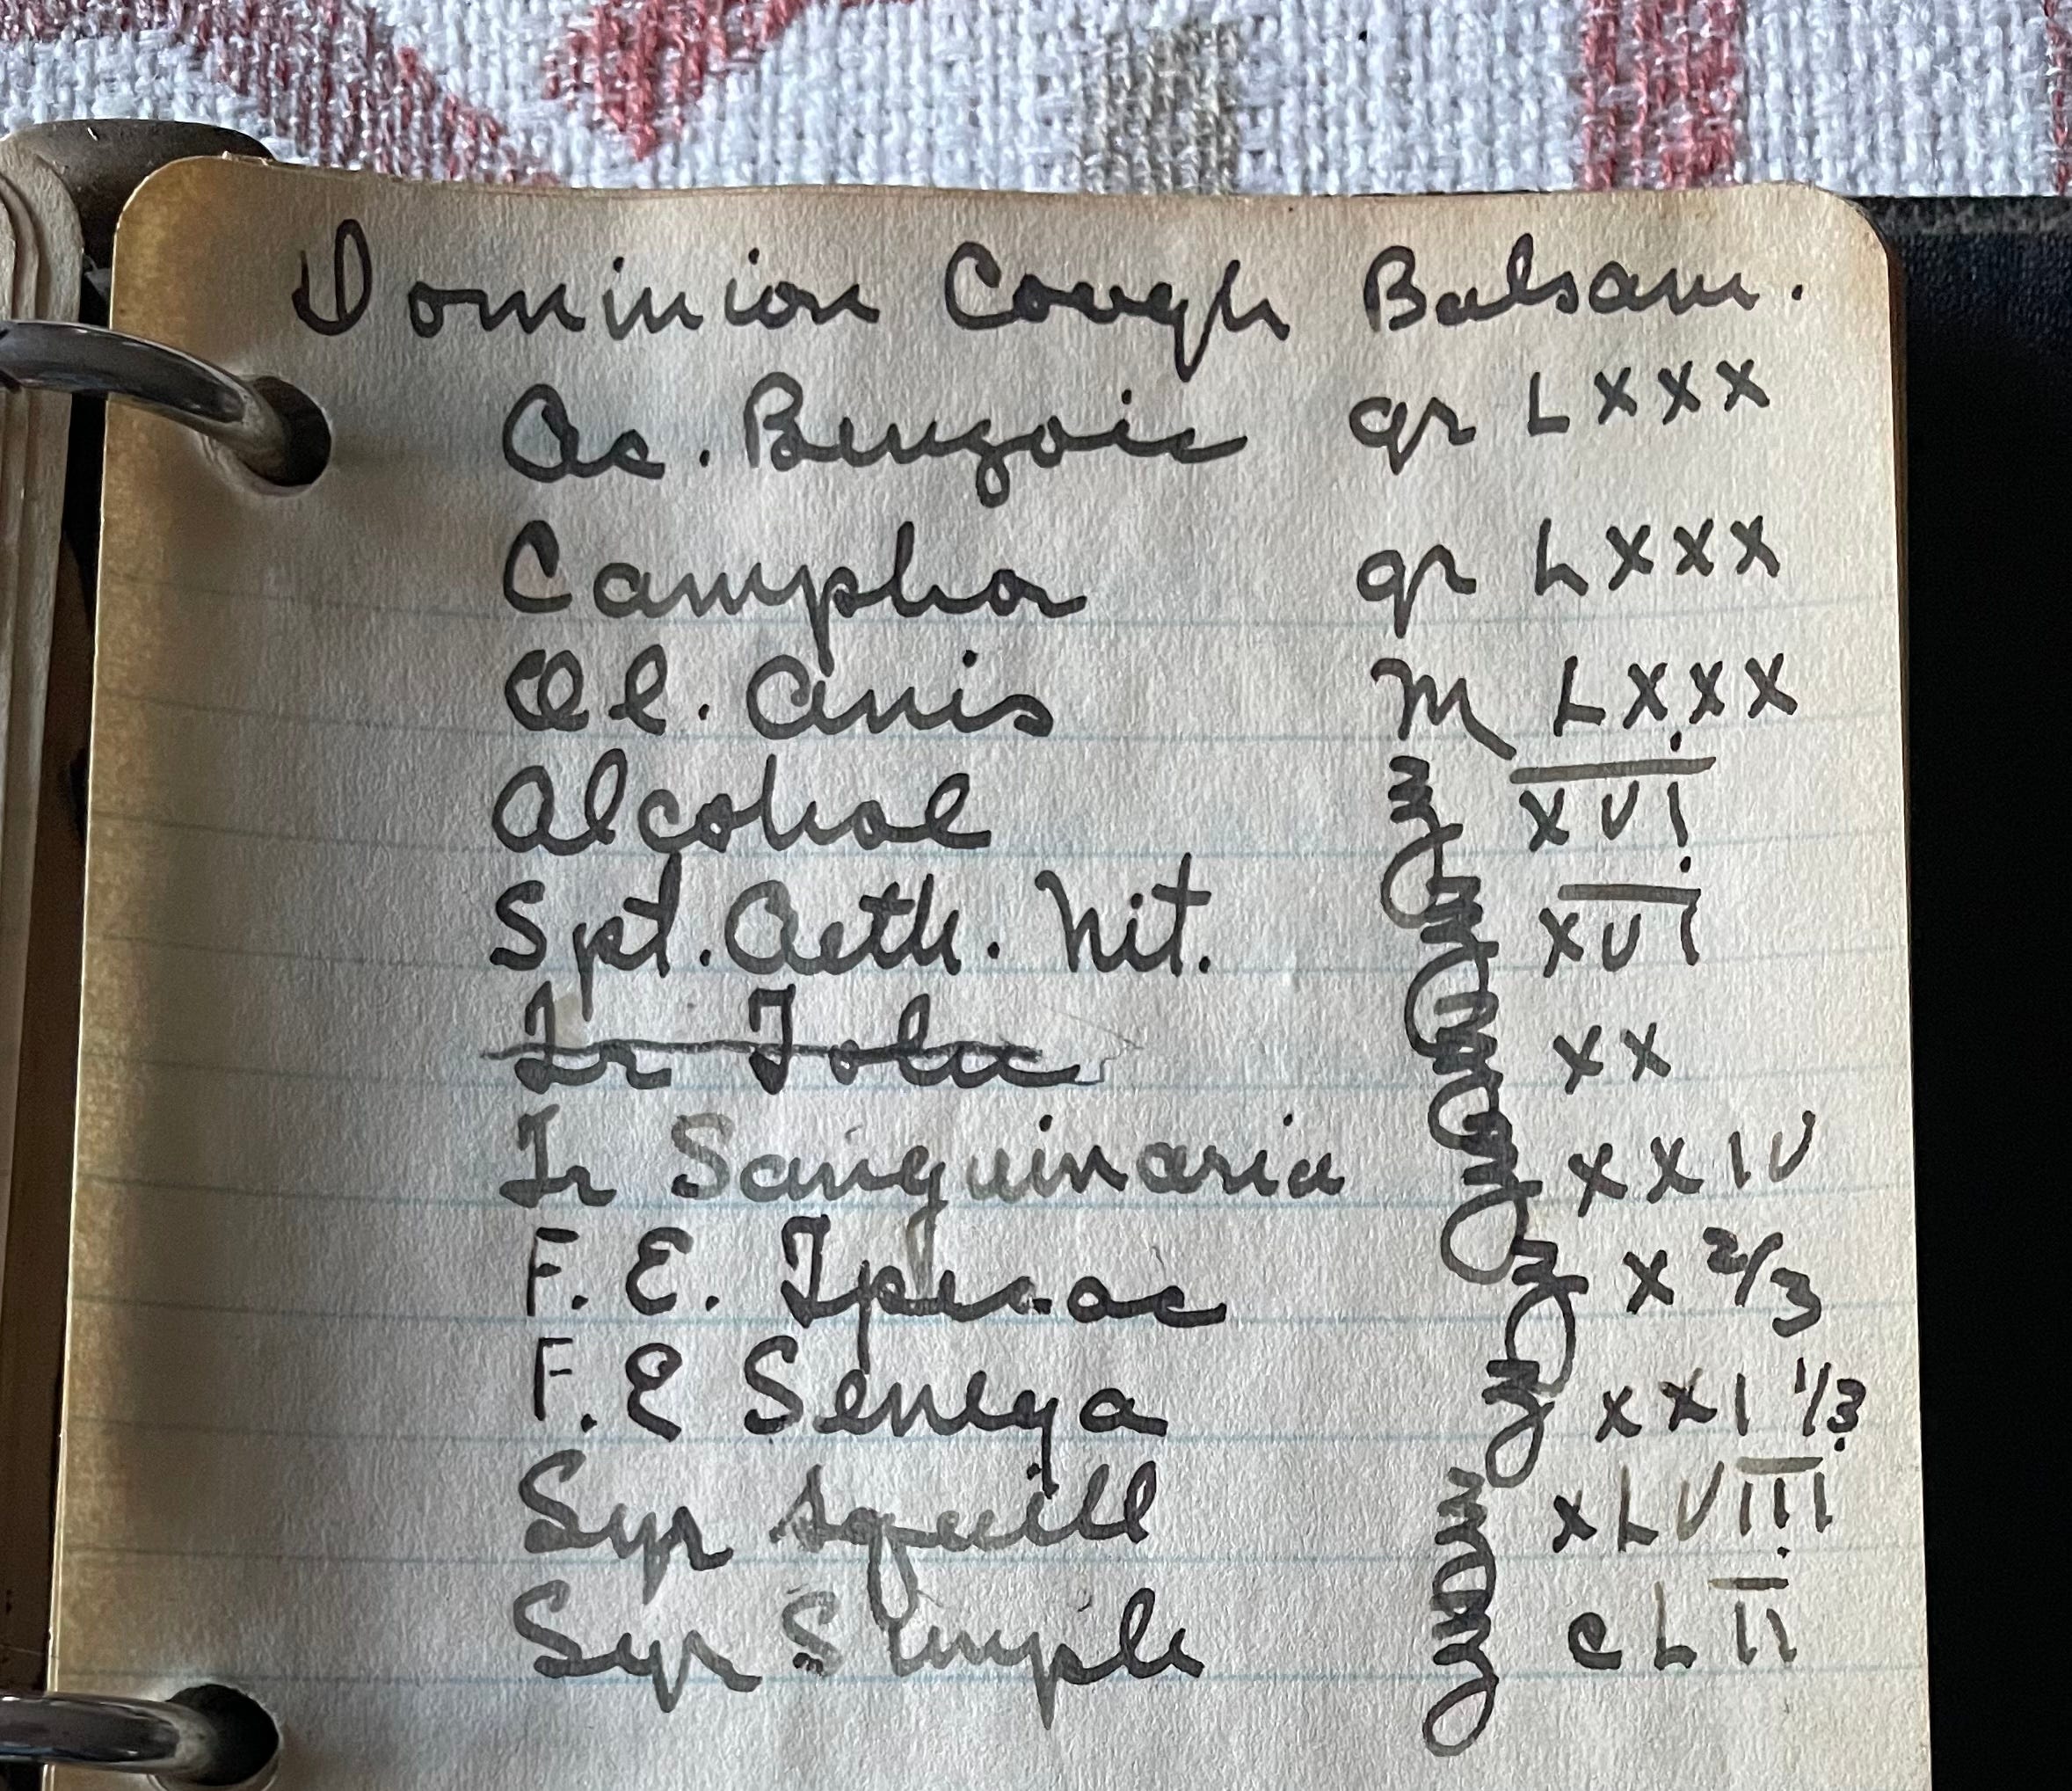 Dominion Cough Balsam.
Ac. Benzoic gr LXXX
Camphor gr LXXX
Ol. Anis ♏ LXXX
Alcohol ℥ XVI
Spt. Aeth. Nit. ℥ XVI
Tr Tolu ℥ XX
Tr Sanguinaria ℥ XXIV
F. E. Ipecac ℥ X 2/3
F. E Senega ℥ XXI 1/3
Syr Squill ℥ XLVIII
Syr Simple ℥ CLII